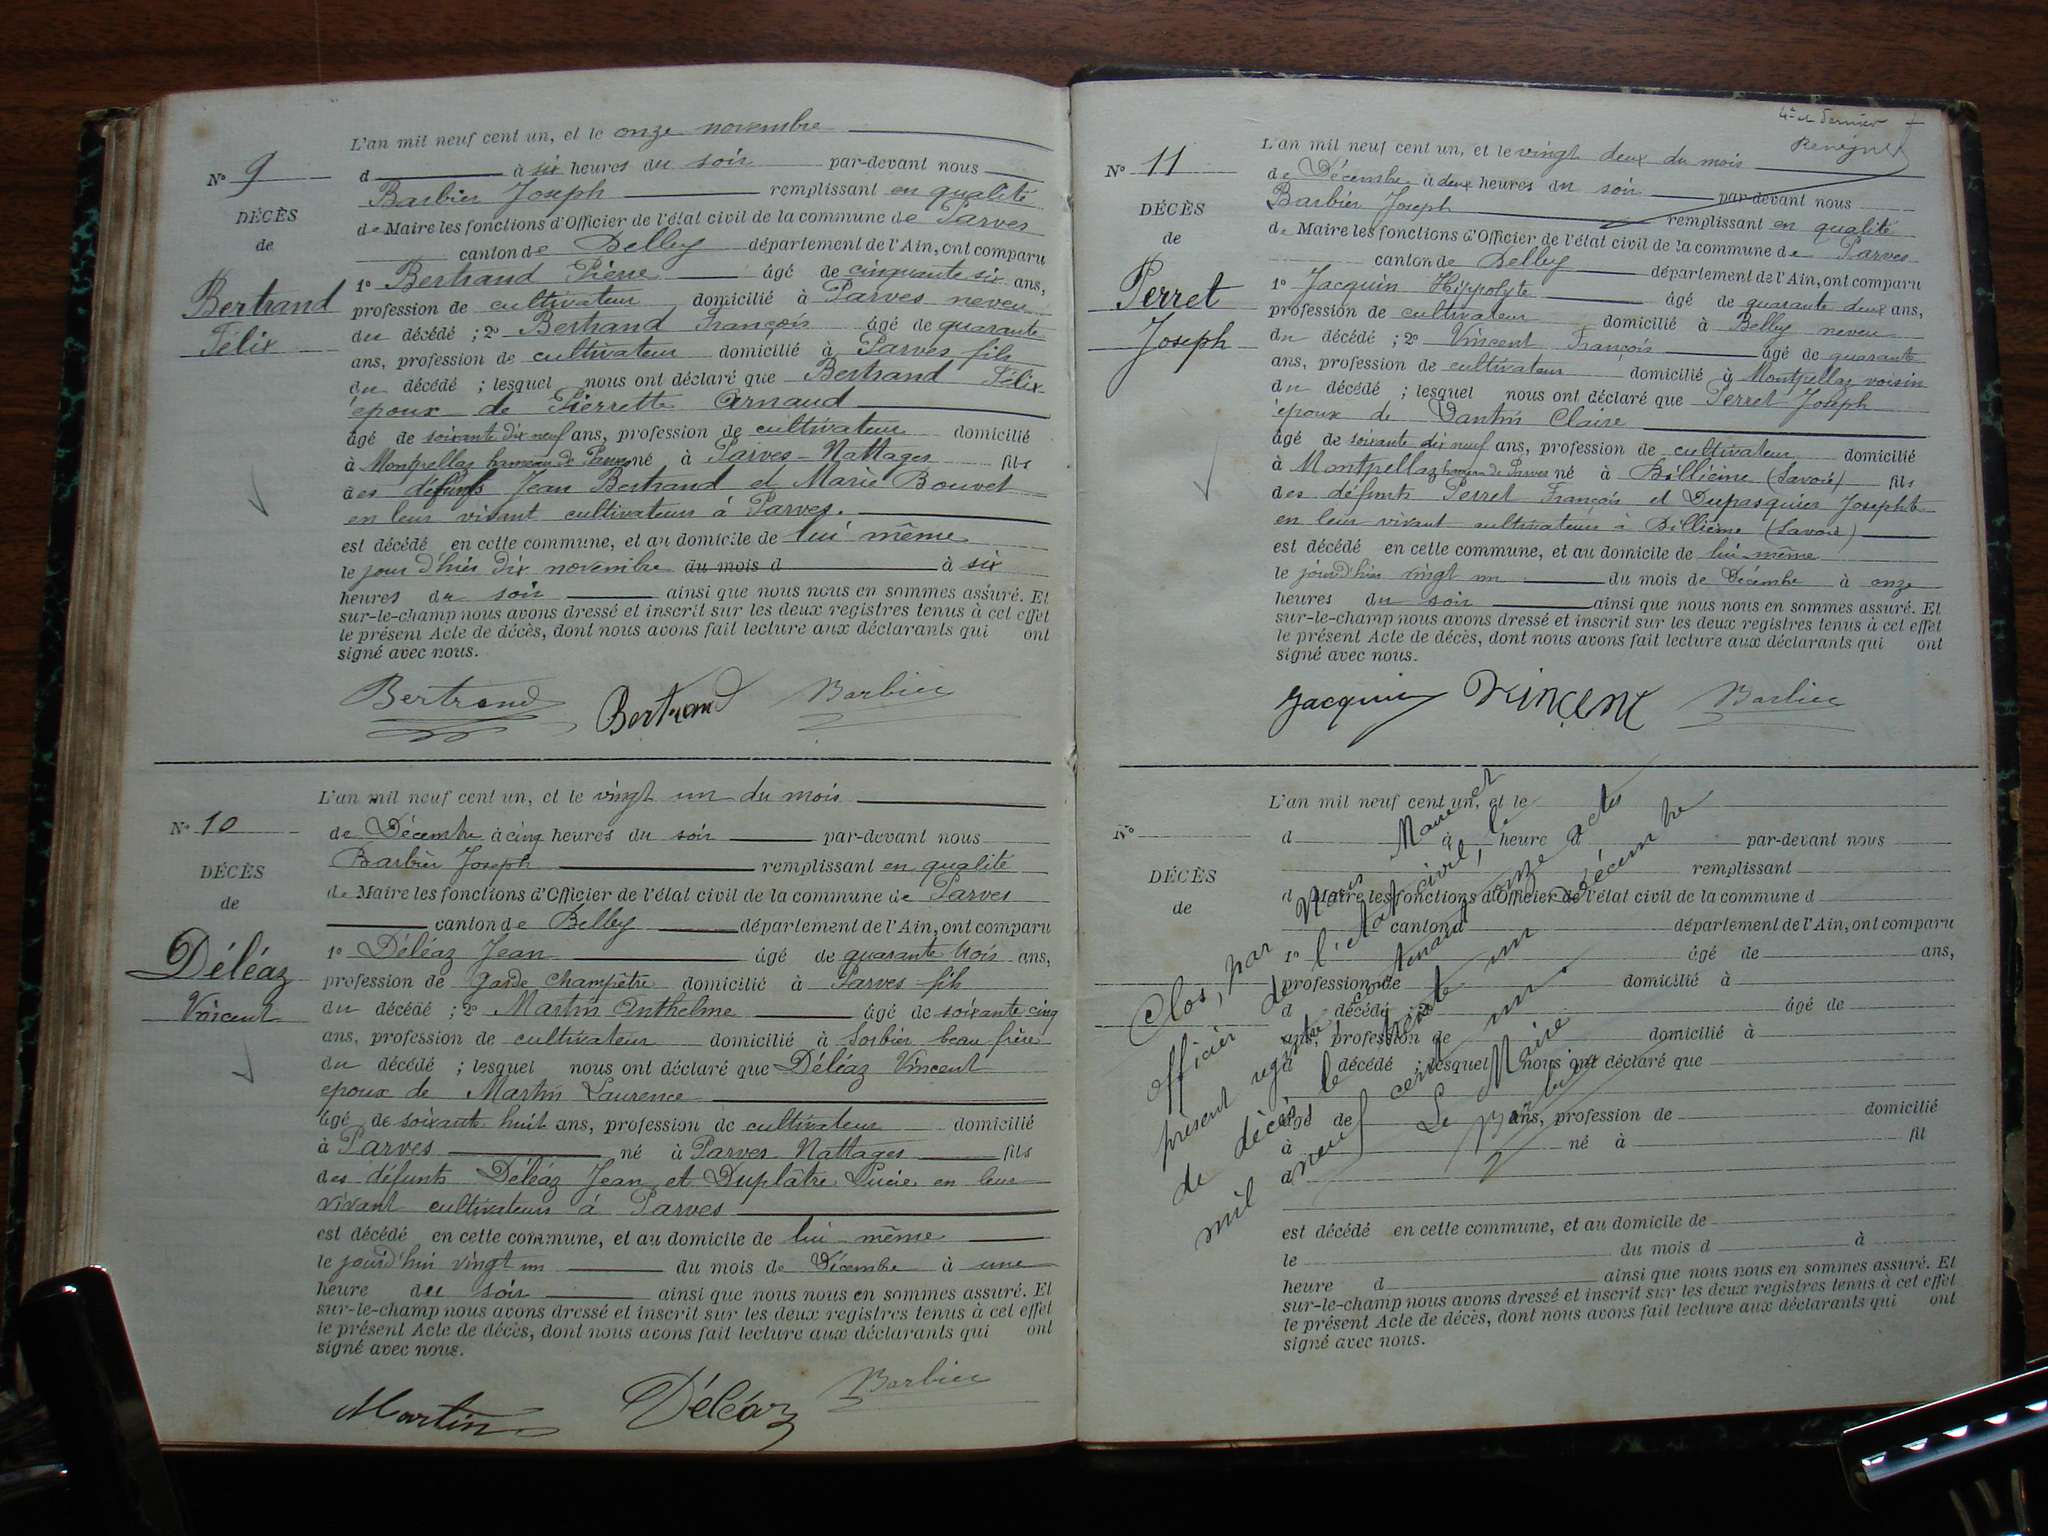 L'an mil neuf cent un, et le onze novembre
N° 9
d à six heures du soir par-devant nous
Barbier Joseph remplissant en qualité
DÉCÈS
de Maire les fonctions d'Officier de l'état civil de la commune de Parves
de
canton de Belley département de l'Ain, ont comparu
1° Bertrand Pierre âgé de cinquante six ans,
Bertrand
Félix
profession de cultivateur domicilié à Parves neveu
du décédé ; 2° Bertrand François âgé de quarante
ans, profession de cultivateur domicilié à Parves fils
du décédé ; lesquel nous ont déclaré que Bertrand Félix
époux de Pierrette Arnaud
âgé de soixante dix neuf ans, profession de cultivateur domicilié
à Montpellaz hameau de Parves né à Parves-Nattages fils
des défunts Jean Bertrand et Marie Bouvet
en leur vivant cultivateurs à Parves.
est décédé en cette commune, et au domicile de lui même
le jour d'hier dix novembre du mois d à six
heures du soir ainsi que nous nous en sommes assuré. Et
sur-le-champ nous avons dressé et inscrit sur les deux registres tenus à cet effet
le présent Acte de décès, dont nous avons fait lecture aux déclarants qui ont
signé avec nous.
Bertrand Bertrand Barbier
L'an mil neuf cent un, et le vingt un du mois
N° 10
de Décembre à cinq heures du soir par-devant nous
Barbier Joseph remplissant en qualité
DÉCÈS
de Maire les fonctions d'Officier de l'état civil de la commune de Parves
de
canton de Belley département de l'Ain, ont comparu
1° Déléaz Jean âgé de quarante trois ans,
Déléaz
Vincent
profession de garde champêtre domicilié à Parves fils
du décédé ; 2° Martin Anthelme âgé de soixante cinq
ans, profession de cultivateur domicilié à Sorbier beau frère
du décédé ; lesquel nous ont déclaré que Déléaz Vincent
epoux de Martin Laurence
âgé de soixante huit ans, profession de cultivateur domicilié
à Parves né à Parves Nattages fils
des défunts Déléaz Jean et Duplâtre Lucie en leur
vivant cultivateurs à Parves
est décédé en cette commune, et au domicile de lui même
le jourd'hui vingt un du mois de Décembre à une
heure du soir ainsi que nous nous en sommes assuré. Et
sur-le-champ nous avons dressé et inscrit sur les deux registres tenus à cet effet
le présent Acte de décès, dont nous avons fait lecture aux déclarants qui ont
signé avec nous.
Martin Déléaz Barbier
4e et dernier
L'an mil neuf cent un, et le vingt deux du mois
N° 11
de Décembre à deux heures du soir par-devant nous
Barbier Joseph remplissant en qualité
DÉCÈS
de Maire les fonctions d'Officier de l'état civil de la commune de Parves
de
canton de Belley département de l'Ain, ont comparu
1° Jacquin Hippolyte âgé de quarante deux ans,
Perret
Joseph
profession de cultivateur domicilié à Belley neveu
du décédé ; 2° Vincent François âgé de quarante
ans, profession de cultivateur domicilié à Montpellaz voisin
du décédé ; lesquel nous ont déclaré que Perret Joseph
époux de Dantin Claire
âgé de soixante dix neuf ans, profession de cultivateur domicilié
à Montpellaz hameau de Parves né à Billième (Savoie) fils
des défunts Perret François et Dupasquier Josephte
en leur vivant cultivateurs à Billième (Savoie)
est décédé en cette commune, et au domicile de lui même
le jourd'hier vingt un du mois de Décembre à onze
heures du soir ainsi que nous nous en sommes assuré. Et
sur-le-champ nous avons dressé et inscrit sur les deux registres tenus à cet effet
le présent Acte de décès, dont nous avons fait lecture aux déclarants qui ont
signé avec nous.
Jacquin Vincent Barbier
L'an mil neuf cent un, et le
N°
d à heure d par-devant nous
remplissant
DÉCÈS
d Maire les fonctions d'Officier de l'état civil de la commune d
de
canton d département de l'Ain, ont comparu
1° âgé de ans,
profession de domicilié à
d décédé ; 2° âgé de
ans, profession de domicilié à
d décédé ; lesquel nous ont déclaré que
âgé de ans, profession de domicilié
à né à fil
d
est décédé en cette commune, et au domicile de
le du mois d à
heure d ainsi que nous nous en sommes assuré. Et
sur-le-champ nous avons dressé et inscrit sur les deux registres tenus à cet effet
le présent Acte de décès, dont nous avons fait lecture aux déclarants qui ont
signé avec nous.
Clos, par Nous Maire et
officier de l'état civil, le
présent registre contenant onze actes
de décès le trente un décembre
mil neuf cent un.
Le Maire
Barbier